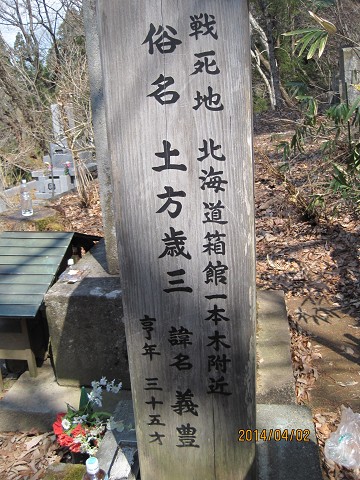 戦死地 北海道箱館一本木附近
俗名 土方歳三 諱名 義豊
亨年 三十五才
2014/04/02